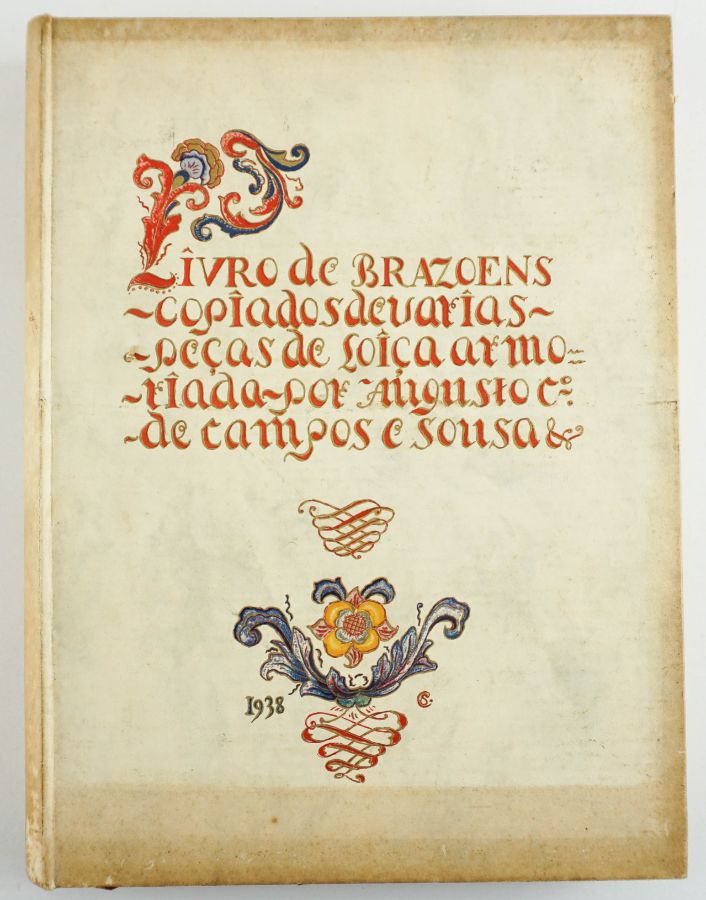 LIVRO de BRAZOENS
~copîados de varîas~
~peças de Loîça armo=
~rîada~por Augusto Cº.
~de campos e sousa &
1938